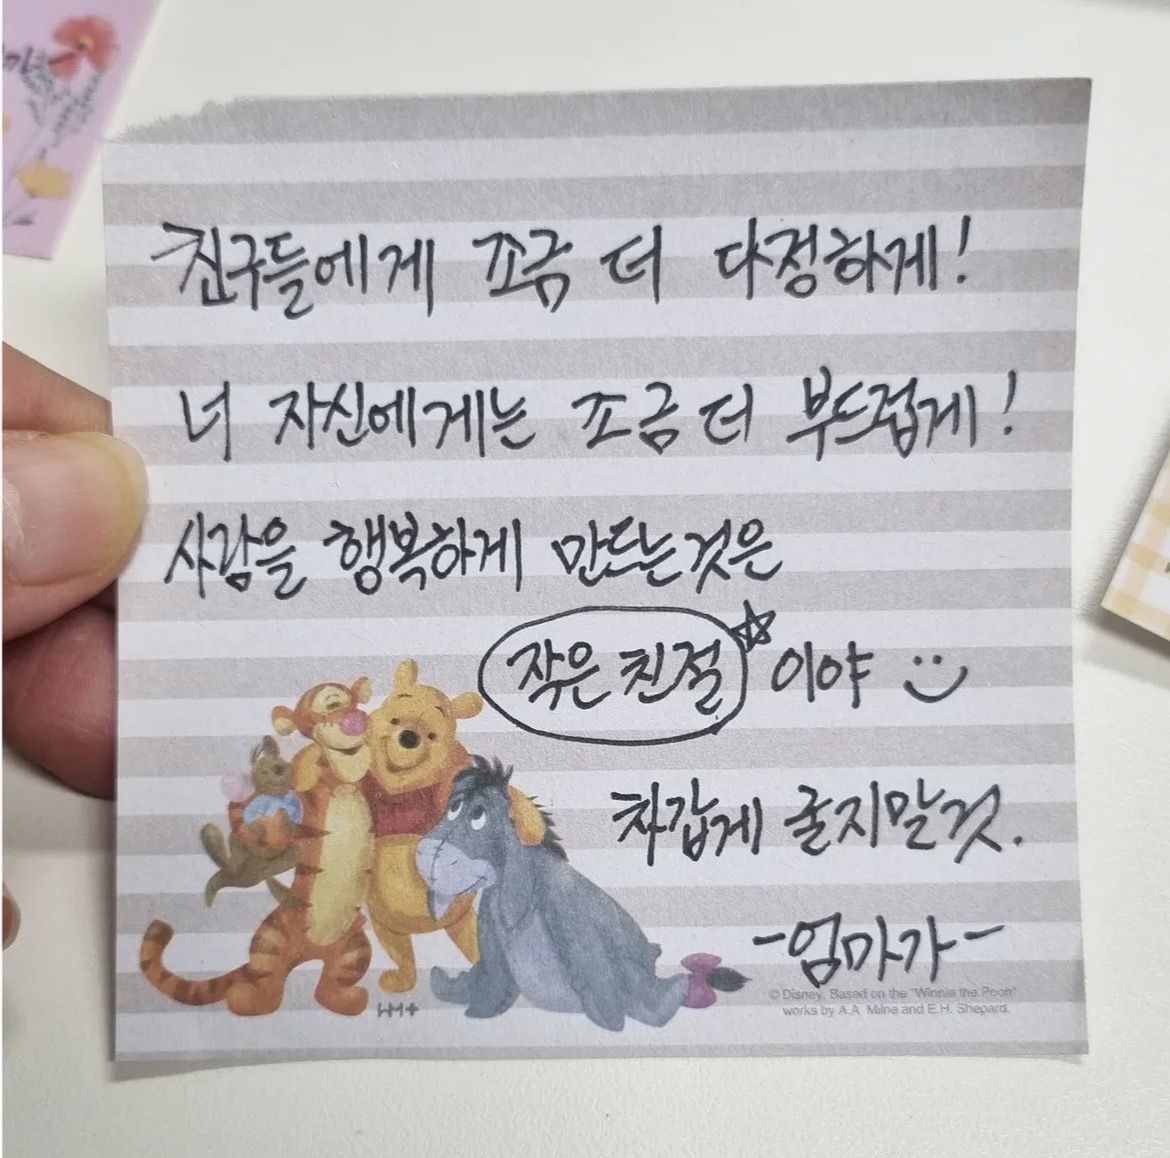 친구들에게 조금 더 다정하게!
너 자신에게는 조금 더 부드럽게!
사람을 행복하게 만드는것은
작은 친절 이야
차갑게 굴지말것.
-엄마가-
© Disney. Based on the "Winnie the Pooh"
works by A.A. Milne and E.H. Shepard.